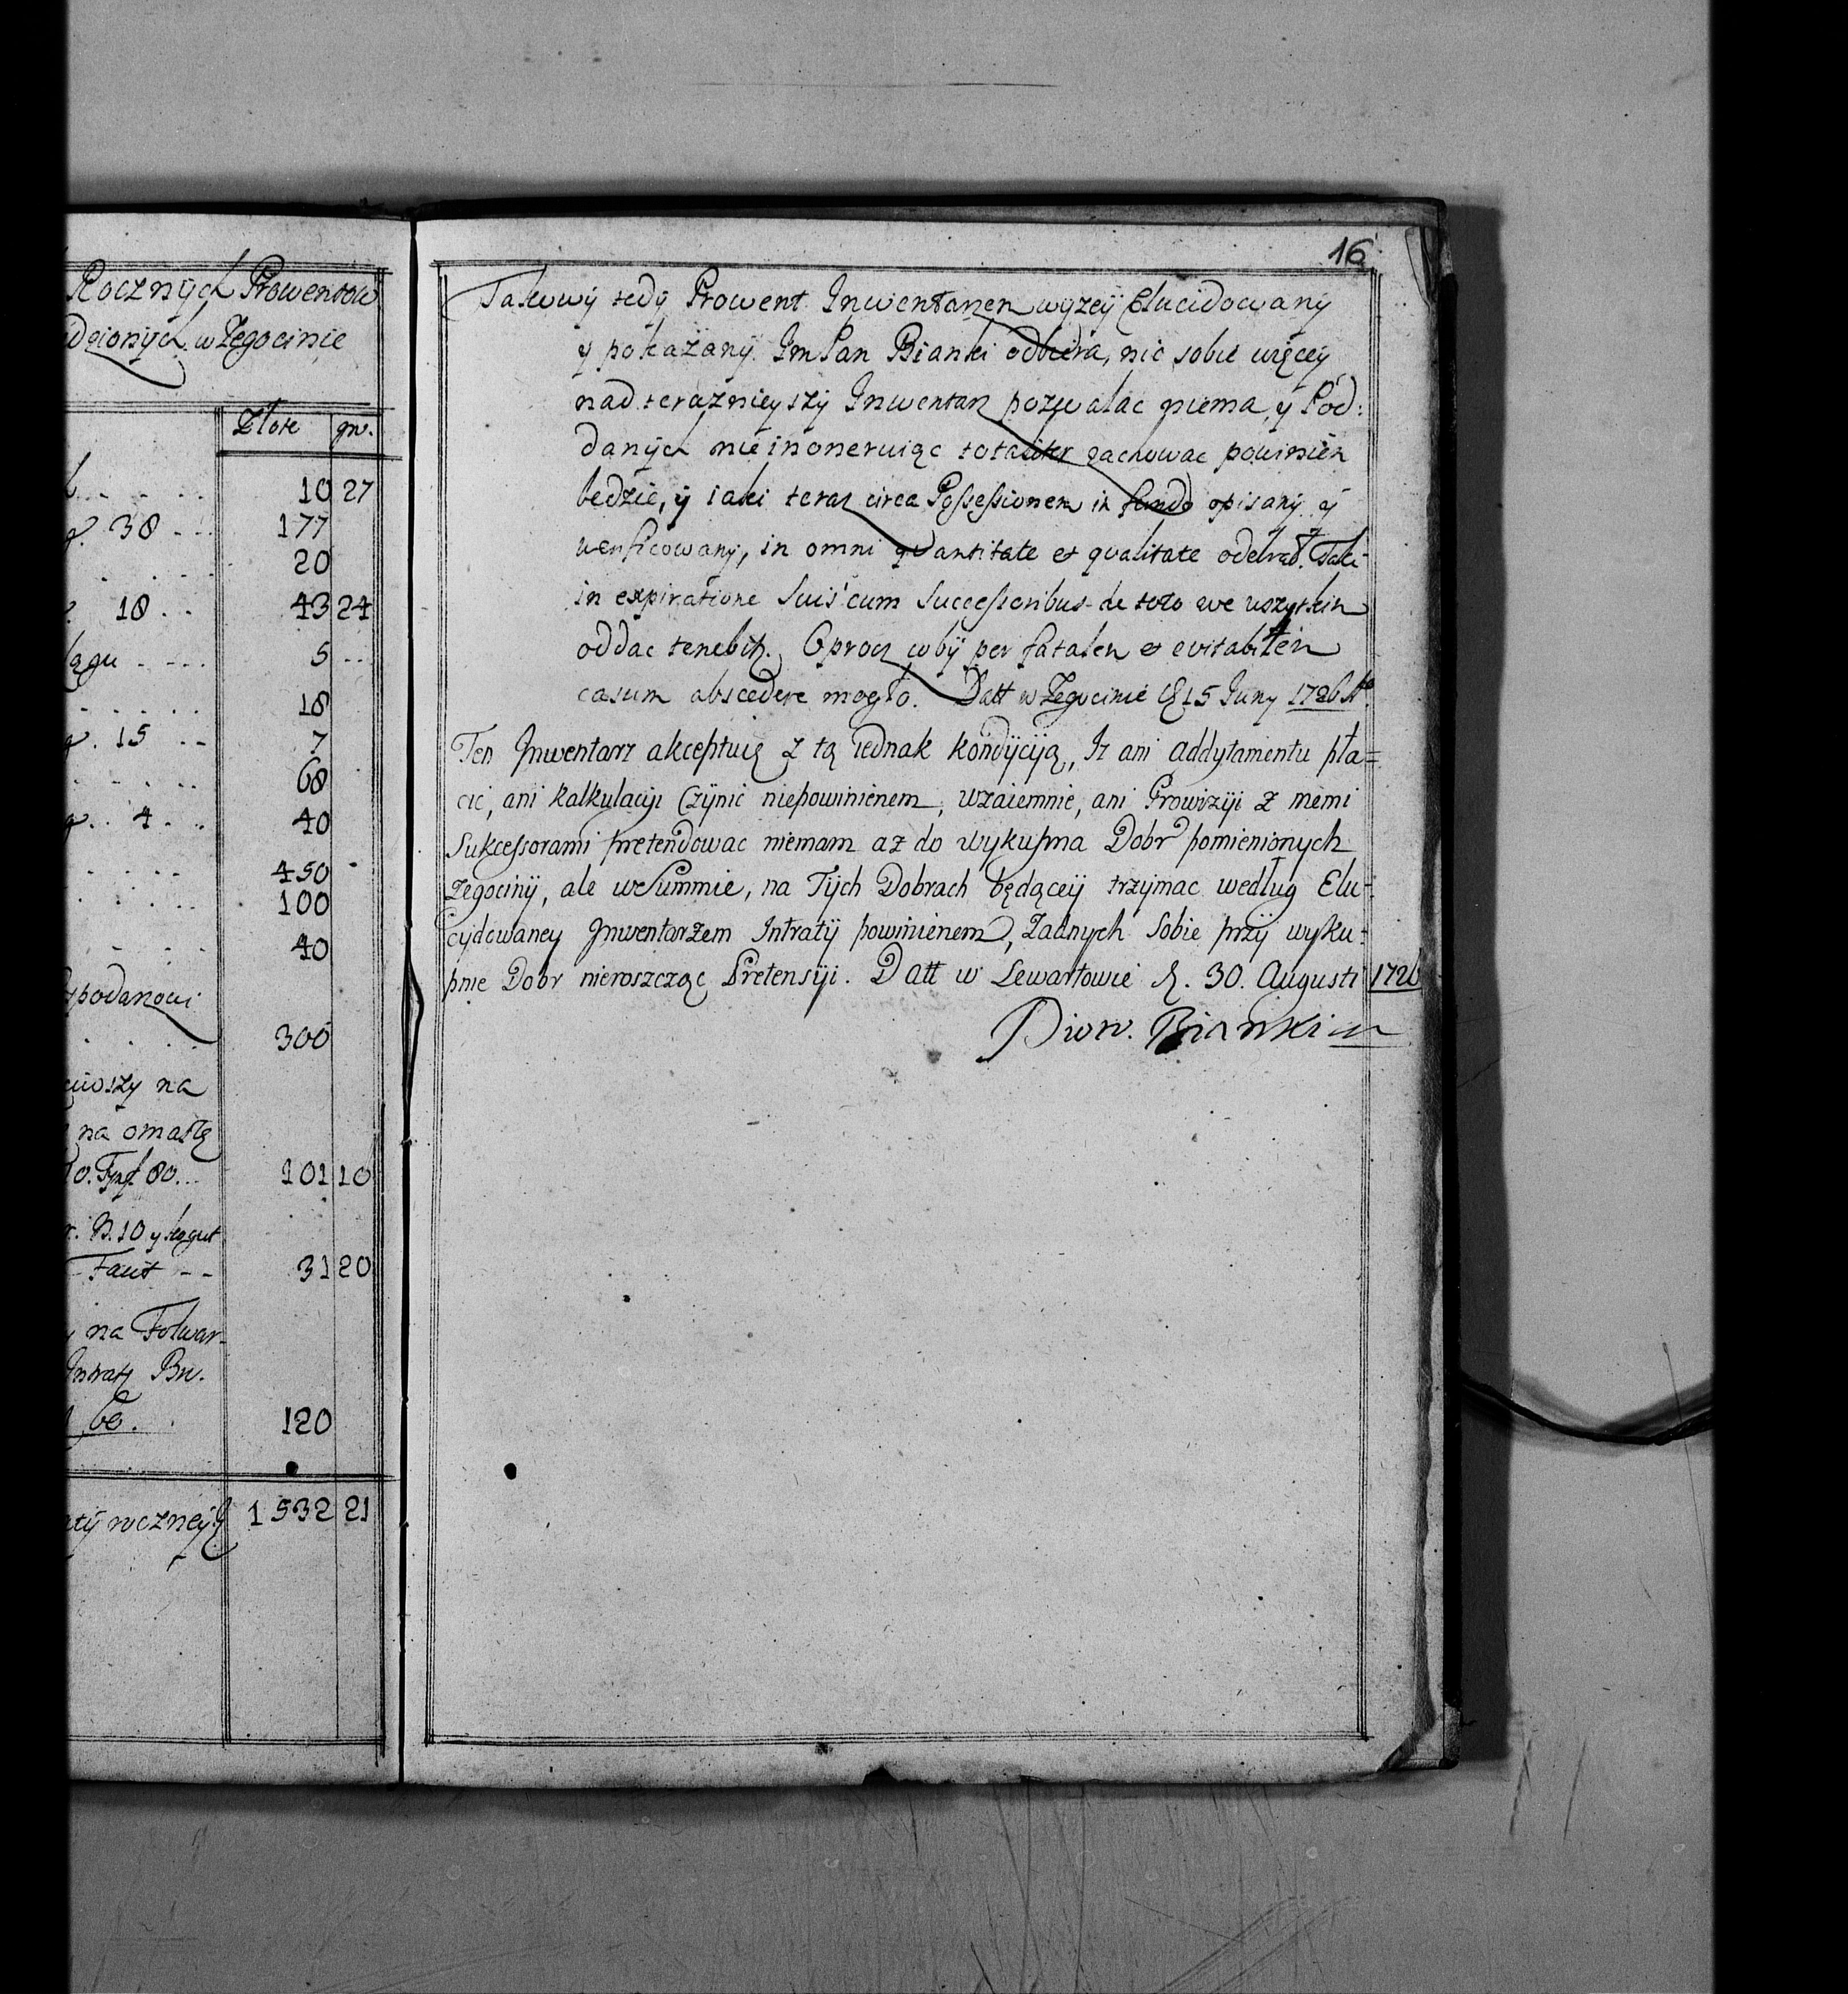 Rocznych Prowentow
w Żegocinie
Złote gr.
10 27
38 177
20
18 43 24
5
18
15 7
68
4 40
450
100
40
podanowi
300
na
na omastę
80 101 10
10 y kogut
31 20
na Folwar-
Intraty
120
roczney 1532 21
16
Takowy tedy Prowent Inwentarzem wyzey Elucidowany
y pokazany ImPan Bianki odbiera, nic sobie więcey
nad teraznieyszy Inwentarz pozwalac niema, y Pod:
danych nie inoneruiąc totaliter zachowac powinien
bedzie, y iaki teraz circa Possessionem in fundo opisany y
weryficowany, in omni quantitate et qualitate odebrał. Taki
in expiratione suis cum Successoribus de toto we wszytkim
oddac tenebitr. Oprocz coby per fatalem et evitabilem
casum abscedere mogło. Datt w Żegocinie 15 Juny 1726
Ten Inwentarz akceptuię z tą iednak kondycyią, Iz ani addytamentu pła=
cić, ani kalkulacyi Czynić niepowinienem, wzaiemnie, ani Prowizyi z memi
Sukcessorami pretendowac niemam az do wykupna Dobr pomienionych
Zegociny, ale w Summie, na Tych Dobrach będącey trzymac według Elu-
cydowaney Inwentarzem Intraty powinienem, Żadnych Sobie przy wyku:
pnie Dobr nieroszcząc Pretensyi. Datt w Lewartowie d. 30. Augusti 1726
Piotr. Bianki